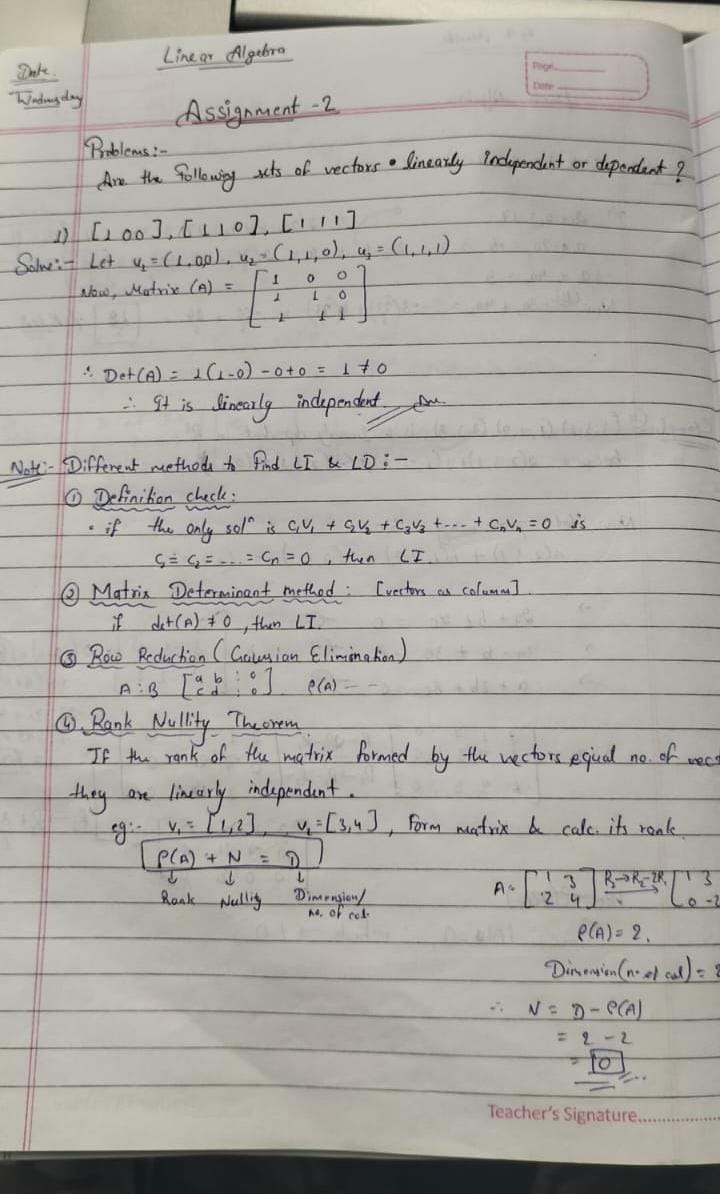 Linear Algebra
Date.
Wednesday
Page
Date
Assignment - 2
Problems:-
Are the following sets of vectors linearly independent or dependent?
1) [1 0 0], [1 1 0], [1 1 1]
Solve:- Let u₁ = (1,0,0), u₂ = (1,1,0), u₃ = (1,1,1)
Now, Matrix (A) = [1 0 0
1 1 0
1 1 1]
∴ Det(A) = 1(1-0) - 0+0 = 1 ≠ 0
∴ It is linearly independent Ans
Note:- Different methods to find LI & LD:-
① Definition check:
• if the only solⁿ is C₁V₁ + C₂V₂ + C₃V₃ + .... + CₙVₙ = 0 is
C₁ = C₂ = ... = Cₙ = 0, then LI.
② Matrix Determinant method: [vectors as columns].
if det(A) ≠ 0, then LI.
③ Row Reduction (Gaussian Elimination)
A:B [a b : 0
c d : 0]. ρ(A) - -
④ Rank Nullity Theorem
If the rank of the matrix formed by the vectors equal no. of vect
they are linearly independent.
eg:- V₁ = [1,2], V₂ = [3,4], Form matrix & calc. its rank.
ρ(A) + N = D
Rank Nullity Dimension/
no. of col.
A = [1 3
2 4] R₂→R₂-2R₁ [1 3
0 -2
ρ(A) = 2.
Dimension (no. of col) = 2
∴ N = D - ρ(A)
= 2 - 2
= 0
Teacher's Signature..................